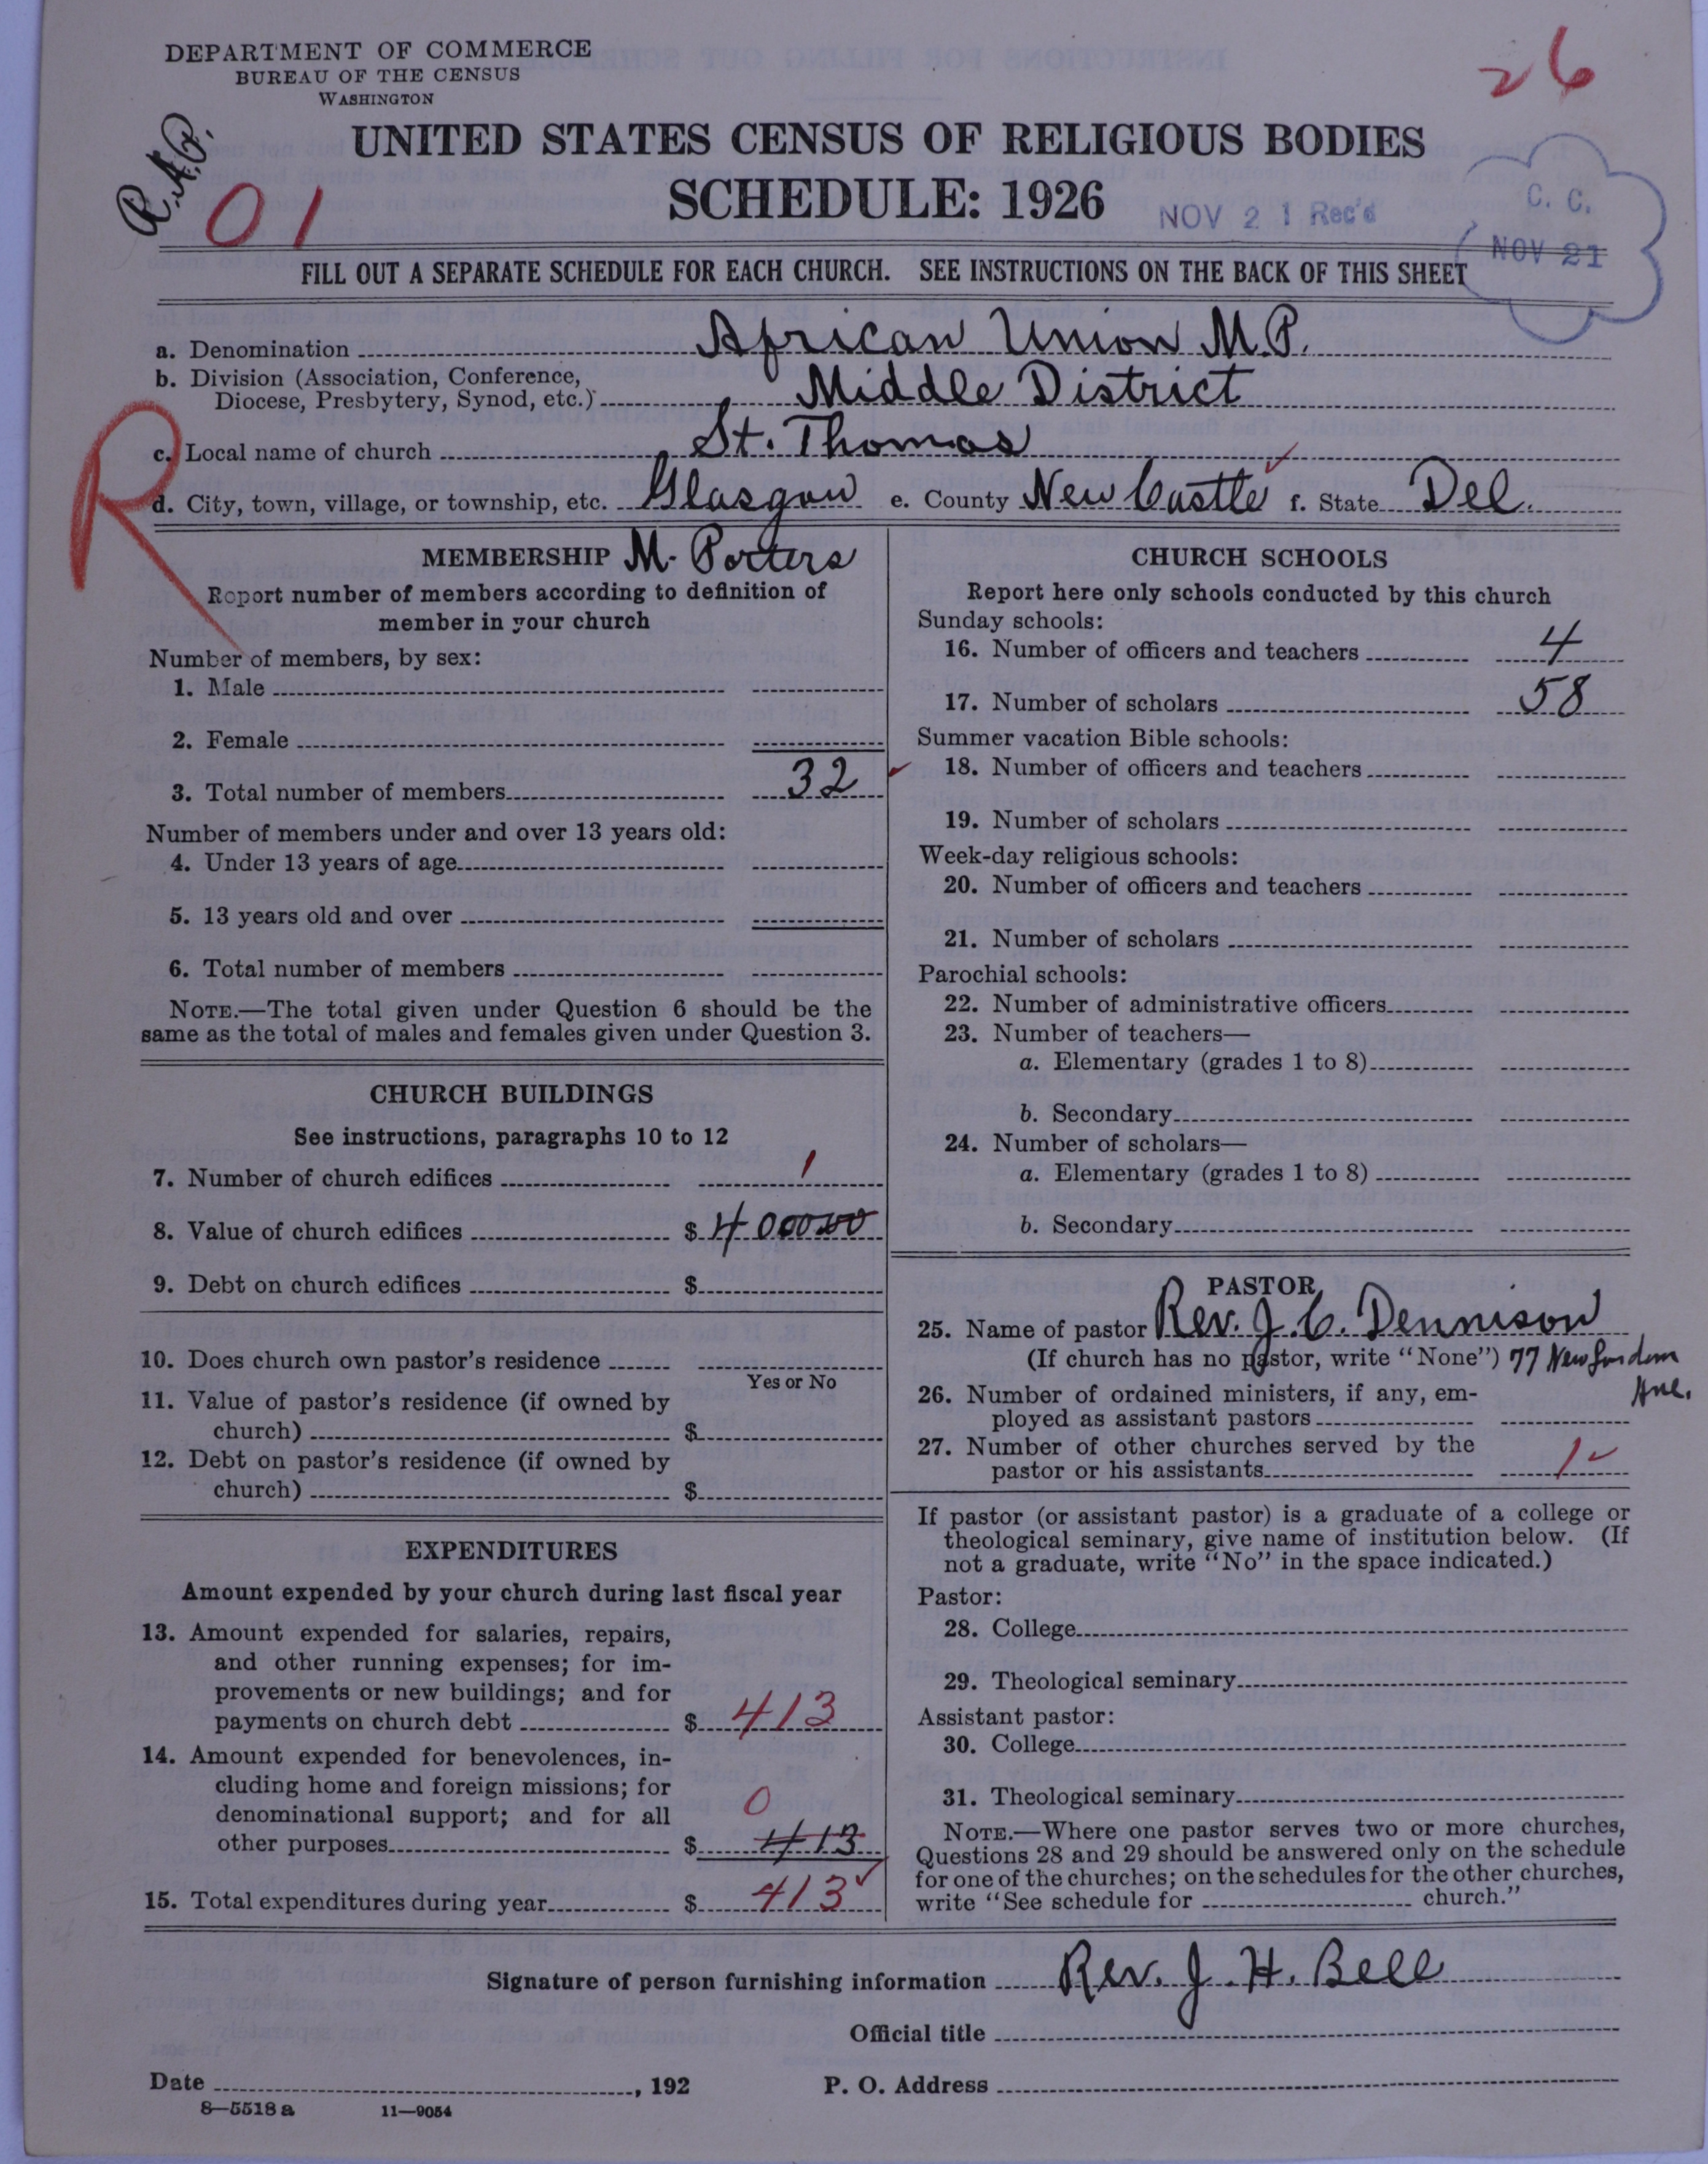 DEPARTMENT OF COMMERCE
BUREAU OF THE CENSUS
WASHINGTON
26
R.A.P.
UNITED STATES CENSUS OF RELIGIOUS BODIES
01
SCHEDULE: 1926
NOV 21 Rec'd
C. C.
NOV 21
FILL OUT A SEPARATE SCHEDULE FOR EACH CHURCH. SEE INSTRUCTIONS ON THE BACK OF THIS SHEET
a. Denomination African Union M.P.
b. Division (Association, Conference,
Diocese, Presbytery, Synod, etc.) Middle District
R
c. Local name of church St. Thomas
d. City, town, village, or township, etc. Glasgow e. County New Castle f. State Del.
MEMBERSHIP M. Porters
Report number of members according to definition of
member in your church
Number of members, by sex:
1. Male
2. Female
3. Total number of members 32
Number of members under and over 13 years old:
4. Under 13 years of age
5. 13 years old and over
6. Total number of members
NOTE.—The total given under Question 6 should be the
same as the total of males and females given under Question 3.
CHURCH BUILDINGS
See instructions, paragraphs 10 to 12
7. Number of church edifices 1
8. Value of church edifices $ 400000
9. Debt on church edifices $
10. Does church own pastor's residence
Yes or No
11. Value of pastor's residence (if owned by
church) $
12. Debt on pastor's residence (if owned by
church) $
EXPENDITURES
Amount expended by your church during last fiscal year
13. Amount expended for salaries, repairs,
and other running expenses; for im-
provements or new buildings; and for
payments on church debt $ 413
14. Amount expended for benevolences, in-
cluding home and foreign missions; for
denominational support; and for all 0
other purposes $ 413
15. Total expenditures during year $ 413
CHURCH SCHOOLS
Report here only schools conducted by this church
Sunday schools:
16. Number of officers and teachers 4
17. Number of scholars 58
Summer vacation Bible schools:
18. Number of officers and teachers
19. Number of scholars
Week-day religious schools:
20. Number of officers and teachers
21. Number of scholars
Parochial schools:
22. Number of administrative officers
23. Number of teachers—
a. Elementary (grades 1 to 8)
b. Secondary
24. Number of scholars—
a. Elementary (grades 1 to 8)
b. Secondary
PASTOR
25. Name of pastor Rev. J. C. Dennison
(If church has no pastor, write "None") 77 New London
Ave.
26. Number of ordained ministers, if any, em-
ployed as assistant pastors
27. Number of other churches served by the
pastor or his assistants 1
If pastor (or assistant pastor) is a graduate of a college or
theological seminary, give name of institution below. (If
not a graduate, write "No" in the space indicated.)
Pastor:
28. College
29. Theological seminary
Assistant pastor:
30. College
31. Theological seminary
NOTE.—Where one pastor serves two or more churches,
Questions 28 and 29 should be answered only on the schedule
for one of the churches; on the schedules for the other churches,
write "See schedule for church."
Signature of person furnishing information Rev. J. H. Bell
Official title
Date , 192
P. O. Address
8—5518 a 11—9054